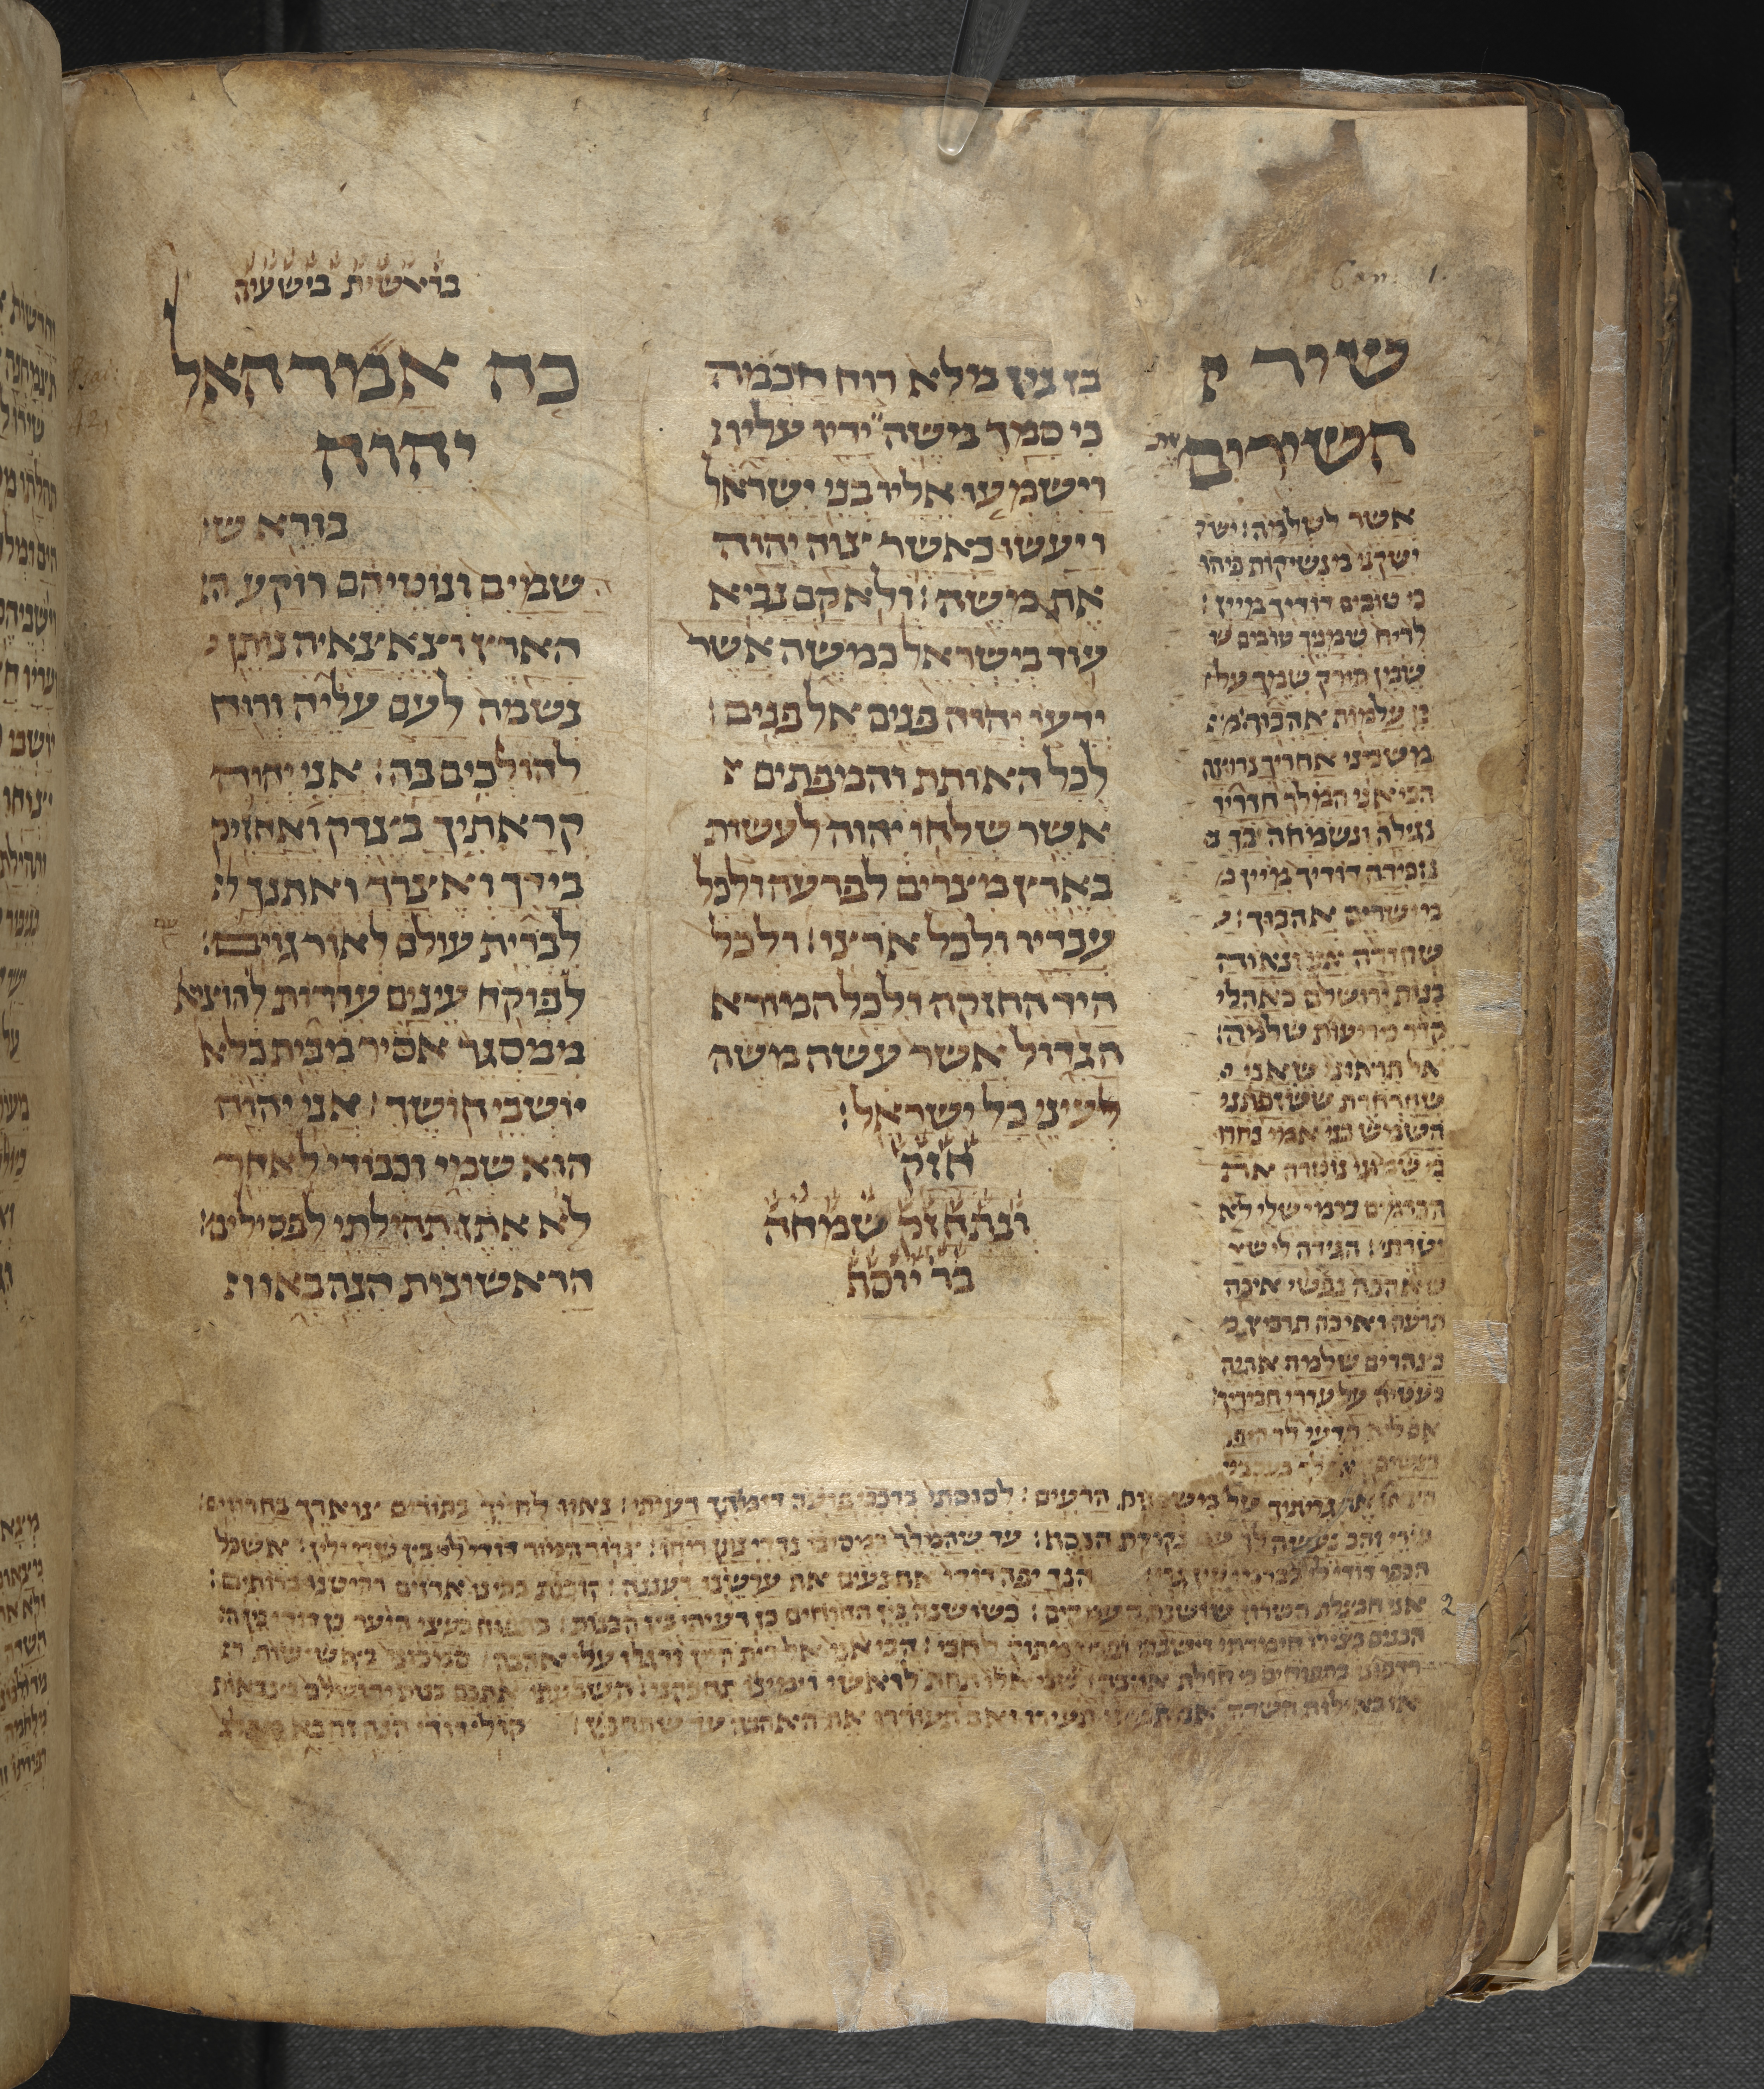 Can. 1.
שיר
השירים
אשר לשלמה׃ ישק
ישקני מנשיקות פיהו
כי טובים דודיך מיין׃
לריח שמניך טובים ש
שמן תורק שמך על
כן עלמות אהבוך׃ מ
משכני אחריך נרוצה
הביאני המלך חדריו
נגילה ונשמחה בך נ
נזכירה דודיך מיין מ
מישרים אהבוך׃
שחורה אני ונאוה
בנות ירושלם כאהלי
קדר כריעות שלמה׃
אל תראוני שאני
שחרחרת ששזפתני
השמש בני אמי נחרו
בי שמוני נוטרה את
הכרמים כרמי שלי לא
נטרתי׃ הגידה לי ש
שאהבה נפשי איכה
תרעה ואיכה תרביץ
בצהרים שלמה אהיה
כעטיה על עדרי חבריך׃
אם לא תדעי לך היפה
בן נון מלא רוח חכמה
כי סמך משה ידיו עליו׃
וישמעו אליו בני ישראל
ויעשו כאשר צוה יהוה
את משה׃ ולא קם נביא
עוד בישראל כמשה אשר
ידעו יהוה פנים אל פנים׃
לכל האותת והמופתים
אשר שלחו יהוה לעשות
בארץ מצרים לפרעה ולכל
עבדיו ולכל ארצו׃ ולכל
היד החזקה ולכל המורא
הגדול אשר עשה משה
לעיני כל ישראל׃
חזק
ונתחזק שמחה
בר יוסף
בראשית בישעיה
כה אמר האל
יהוה
בורא ש
שמים ונוטיהם רוקע ה
הארץ וצאצאיה נותן
נשמה לעם עליה ורוח
להולכים בה׃ אני יהוה
קראתיך בצדק ואחזיק
בידך ואצרך ואתנך ל
לברית עולם לאור גוים׃
עם
לפוקח עינים עורות להוציא
ממסגר אסיר מבית כלא
יושבי חושך׃ אני יהוה
הוא שמי וכבודי לאחר
לא אתן ותהילתי לפסילים׃
הראשונות הנה באו ו
הרעים׃ לסוסתי ברכבי פרעה דימיתיך רעיתי׃ נאוו לחייך בתורים צוארך בחרוזים׃
נקודת הכסף׃ עד שהמלך במסיבו נרדי נתן ריחו׃ צרור המור דודי לי בין שדי ילין׃ אשכל
הכפר דודי לי הנך יפה דודי אף נעים אף ערשינו רעננה׃ קורות בתינו ארזים רהיטנו ברותים׃
אני חבצלת השרון שושנת העמקים׃ כשושנה בין החוחים כן רעיתי בין הבנות׃ כתפוח בעצי היער כן דודי בין ה
הבנים בצילו חימדתי וישבתי ופריו מתוק לחכי׃ הביאני אל בית היין ודגלו עלי אהבה׃ סמכוני באשישות ר
רפדוני בתפוחים כי חולת אהבה׃ שמאלו תחת לראשי וימינו תחבקני׃ השבעתי אתכם בנות ירושלם בצבאות
או באילות השדה אם תעירו ואם תעוררו את האהבה עד שתחפץ׃ קול דודי הנה זה בא
2